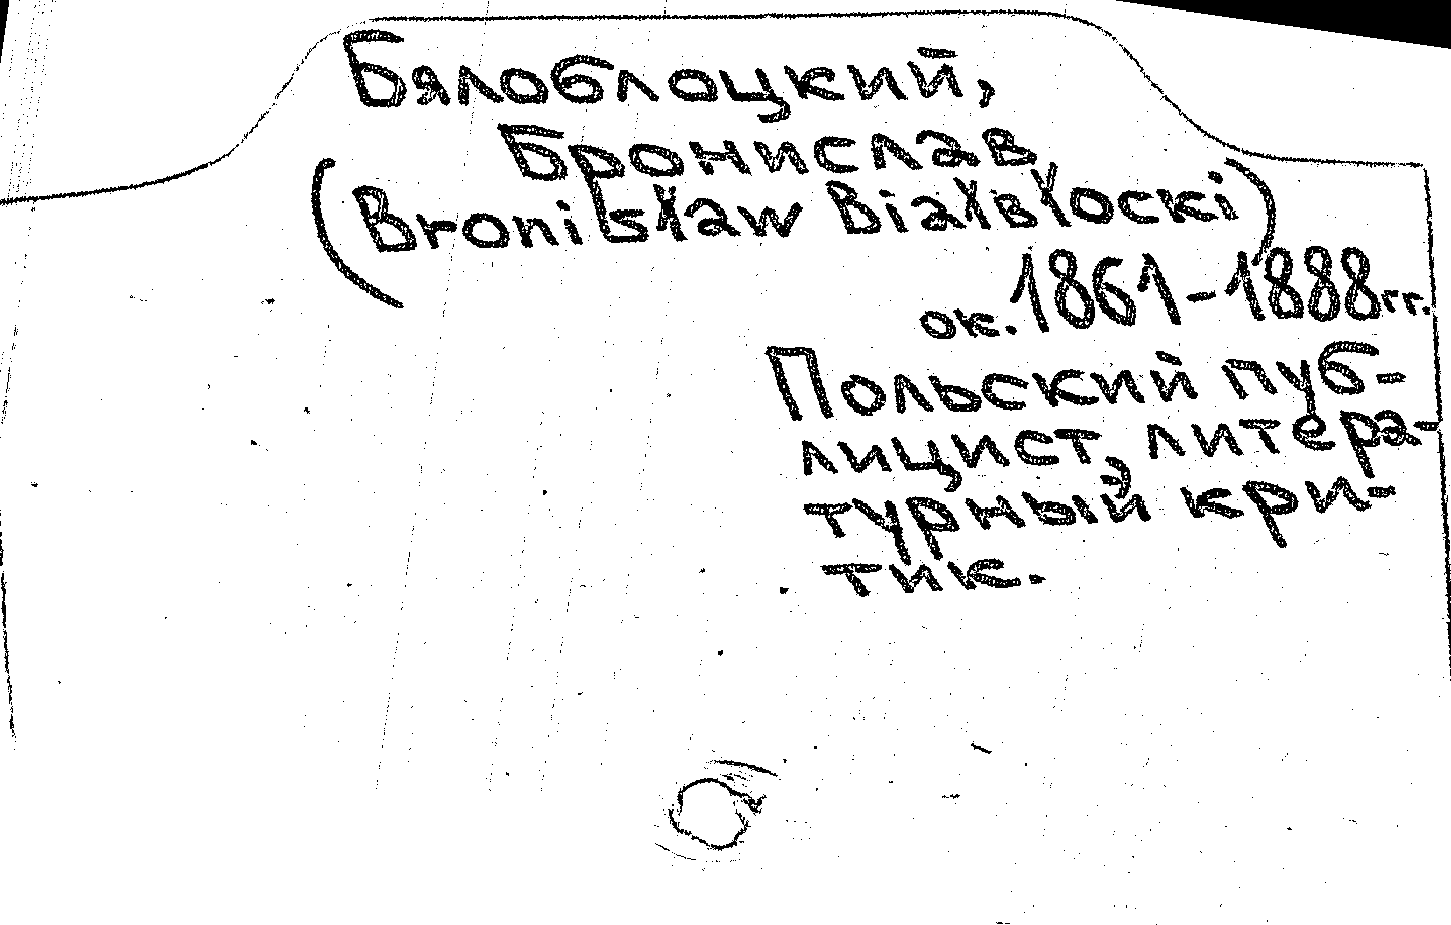 Бялоблоцкий,
Бронислав
(Bronisław Białłbłocki)
ок. 1861-1888 гг.
Польский пуб-
лицист, литера-
турный кри-
тик.